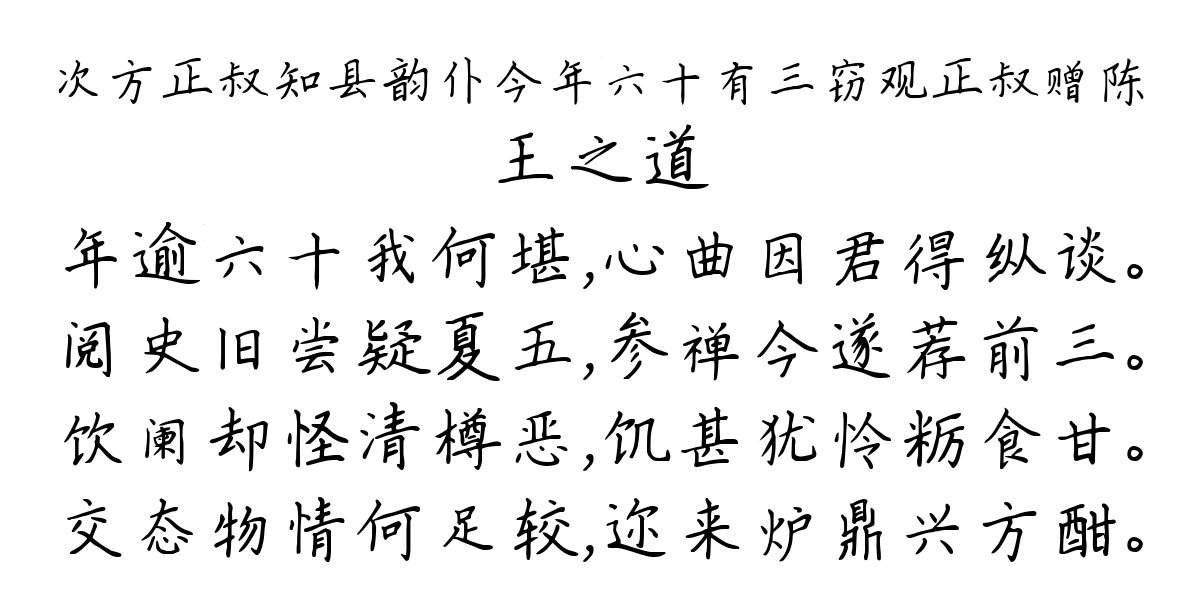 次方正叔知县韵仆今年六十有三窃观正叔赠陈
王之道
年逾六十我何堪,心曲因君得纵谈。
阅史旧尝疑夏五,参禅今遂荐前三。
饮阑却怪清樽恶,饥甚犹怜粝食甘。
交态物情何足较,迩来炉鼎兴方酣。